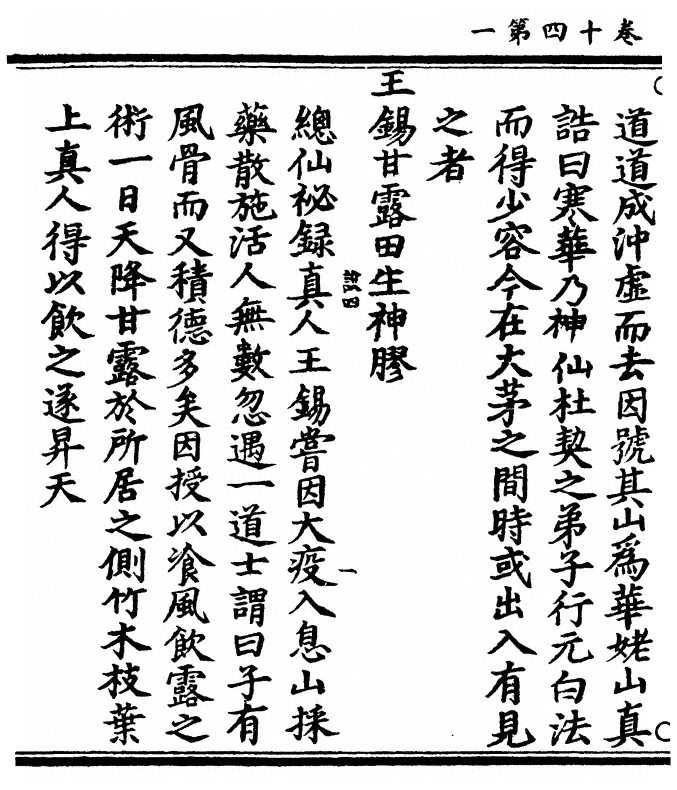 卷十四第一
道道成沖虛而去因號其山爲華姥山真
誥曰寒華乃神仙杜契之弟子行元白法
而得少容今在大茅之間時或出入有見
之者
王錫甘露田生神膠
總仙祕録真人王錫嘗因大疫入息山採
藥散施活人無數忽遇一道士謂曰子有
風骨而又積德多矣因授以飡風飲露之
術一日天降甘露於所居之側竹木枝葉
上真人得以飲之遂昇天